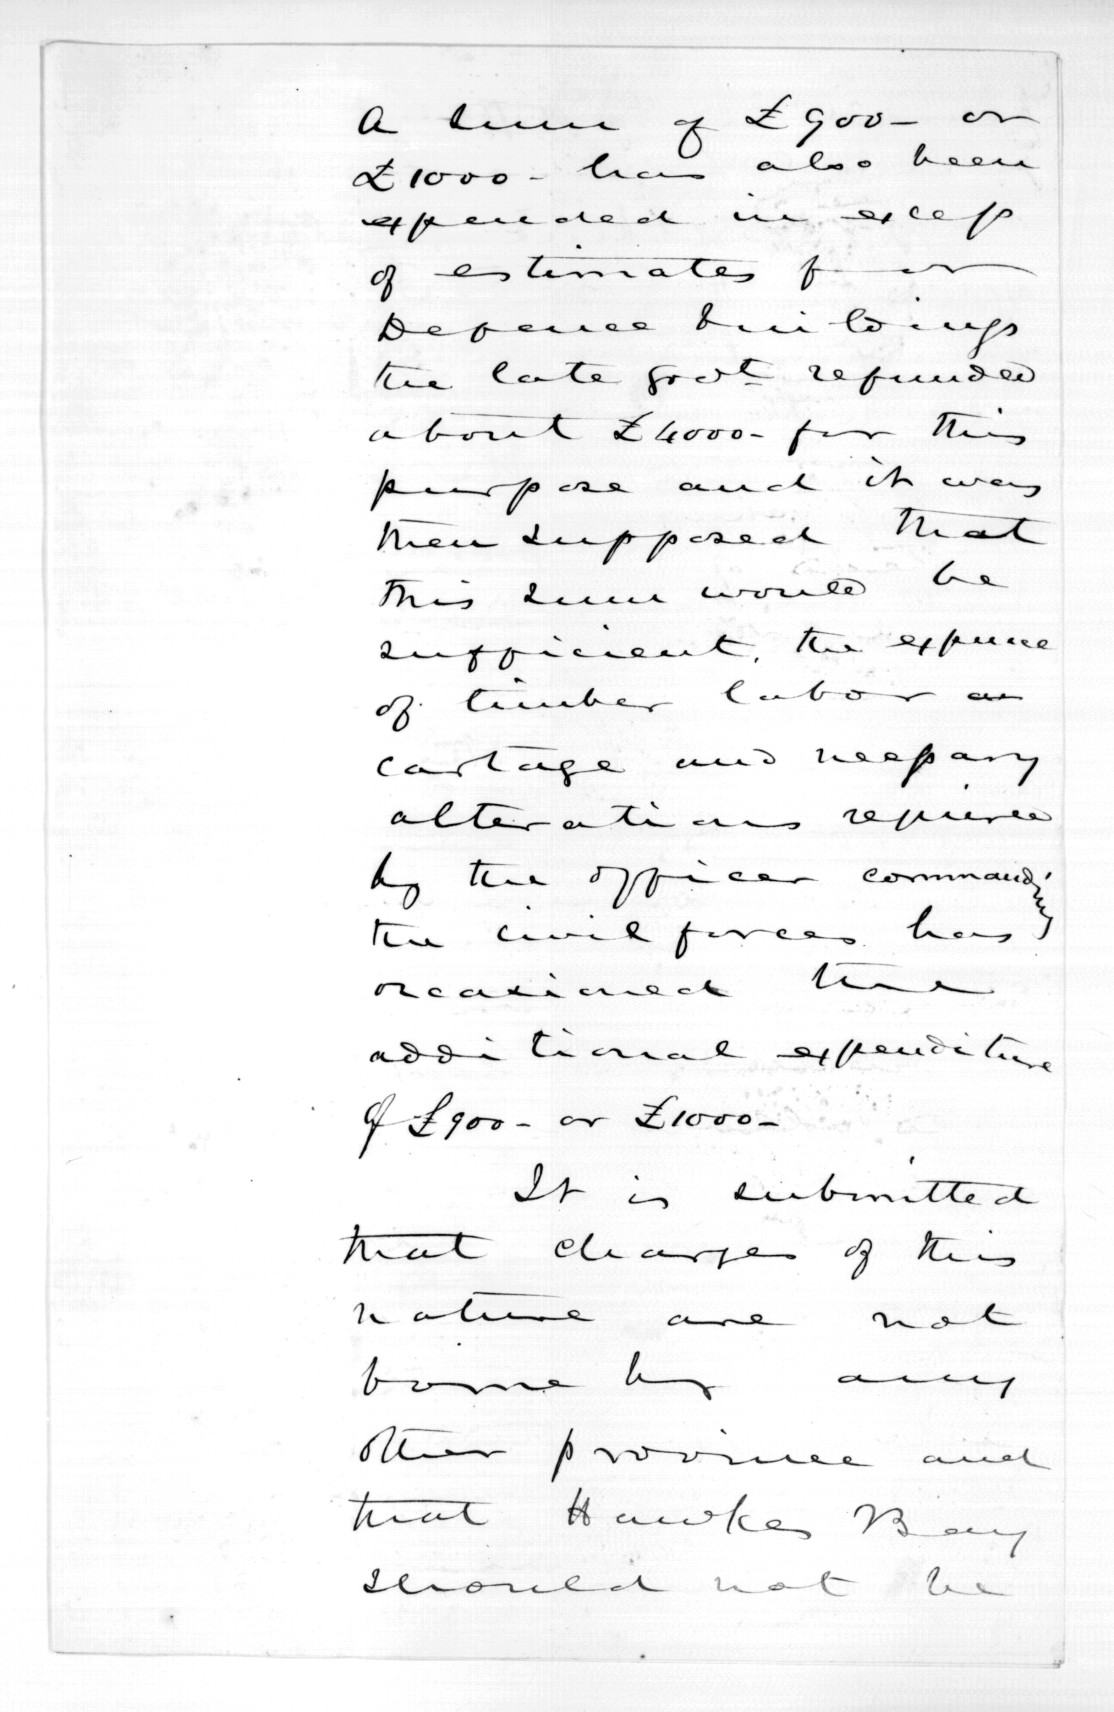 A sum of £900- or
£1000- has also been
expended in excess
of estimates for
Defence buildings
the late Govt refunded
about £4000- for this
purpose and it was
then supposed that
this sum would be
sufficient, the expence
of timber labor
cartage and necessary
alterations required
by the officer commanding
the civil forces has
occasioned the
additional expenditure
of £900- or £1000-
It is submitted
that charges of this
nature are not
borne by any
other province and
that Hawkes Bay
should not be